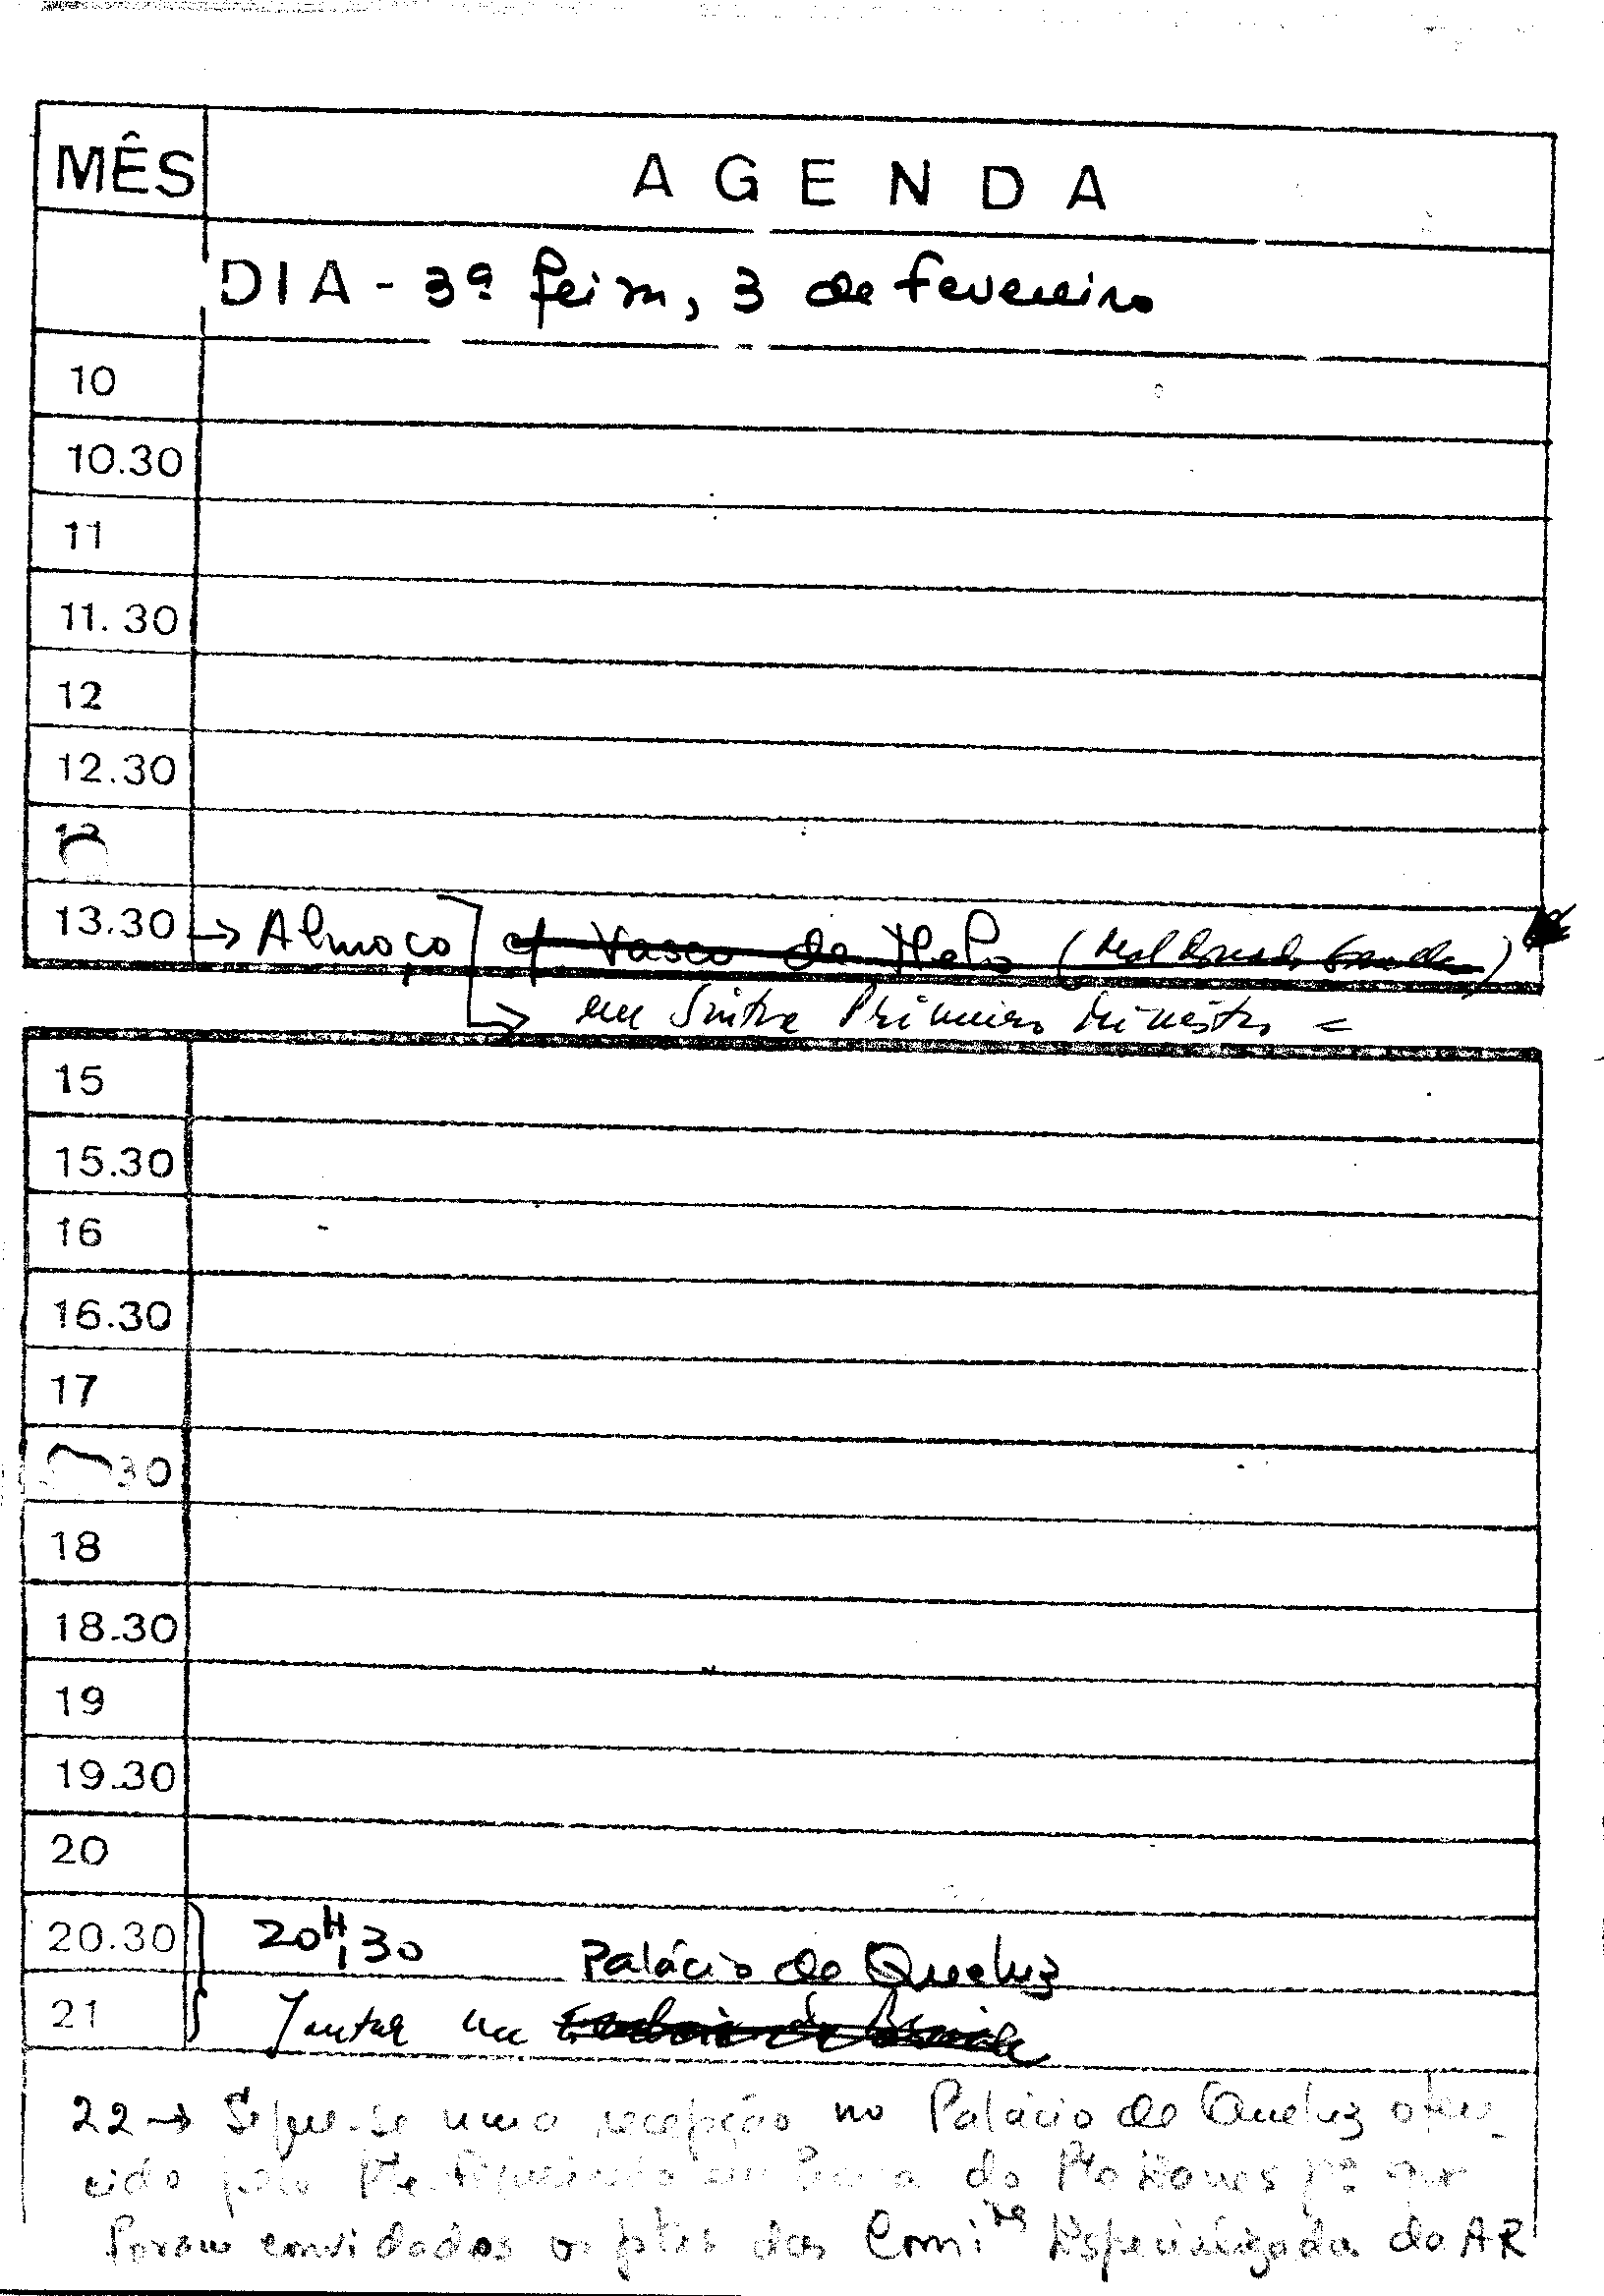 MÊS
A G E N D A
DIA - 3ª feira, 3 de fevereiro
10
10.30
11
11.30
12
12.30
13
13.30 → Almoço c/ Vasco de Melo (
→ em Sintra Primeiro Ministro =
15
15.30
16
16.30
17
30
18
18.30
19
19.30
20
20.30 20H,30 Palácio de Queluz
21 Jantar na
22 → Segue-se uma recepção no Palácio de Queluz ofere-
cido pelo Pte. Figueiredo em honra do Pte Eanes pª que
foram convidados os ptes das Comiões Especializadas da AR